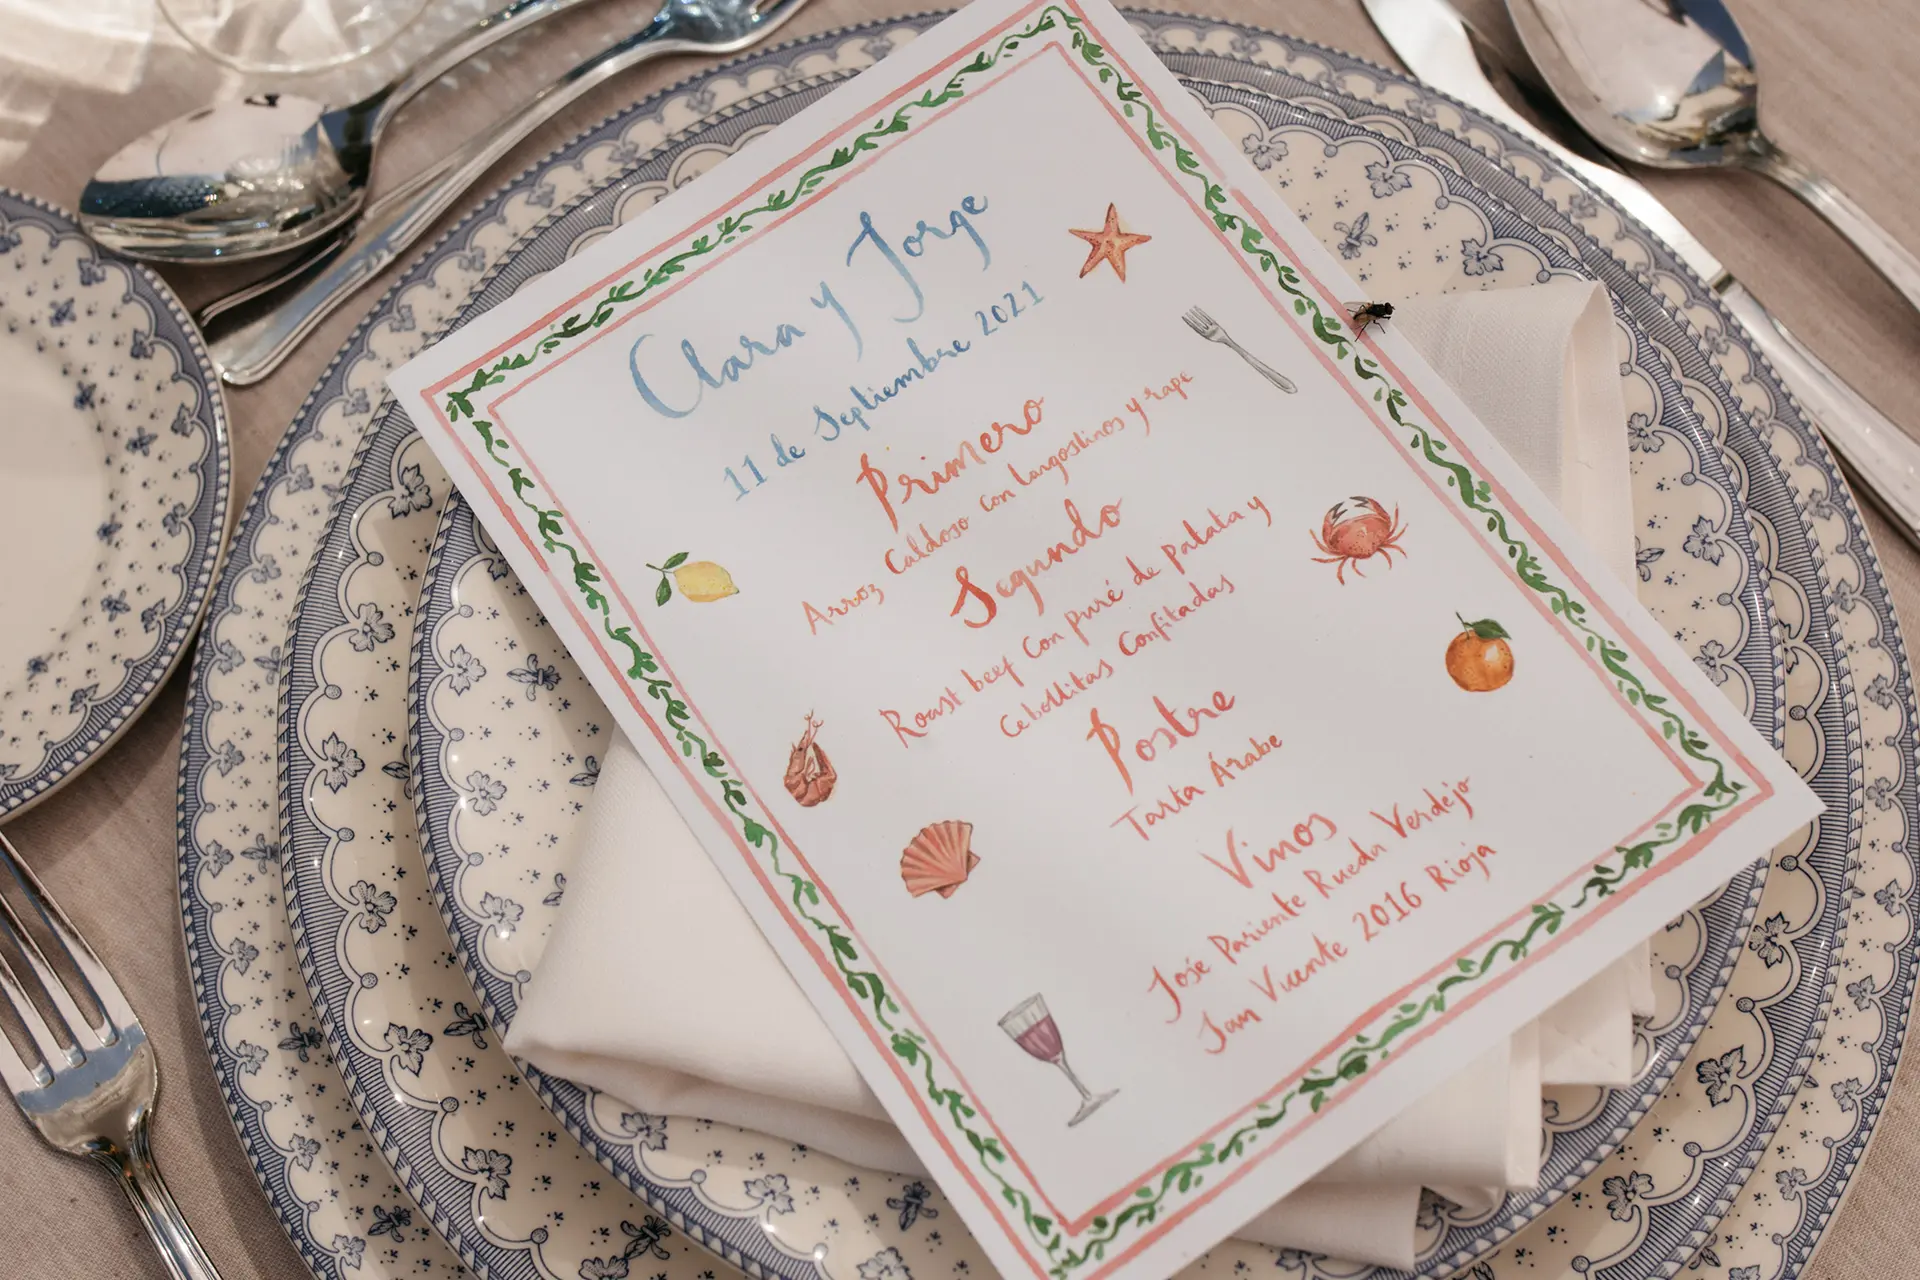 Clara y Jorge
11 de Septiembre 2021
Primero
Arroz Caldoso con langostinos y rape
Segundo
Roast beef con puré de patata y
Cebollitas Confitadas
Postre
Tarta Árabe
Vinos
José Pariente Rueda Verdejo
San Vicente 2016 Rioja